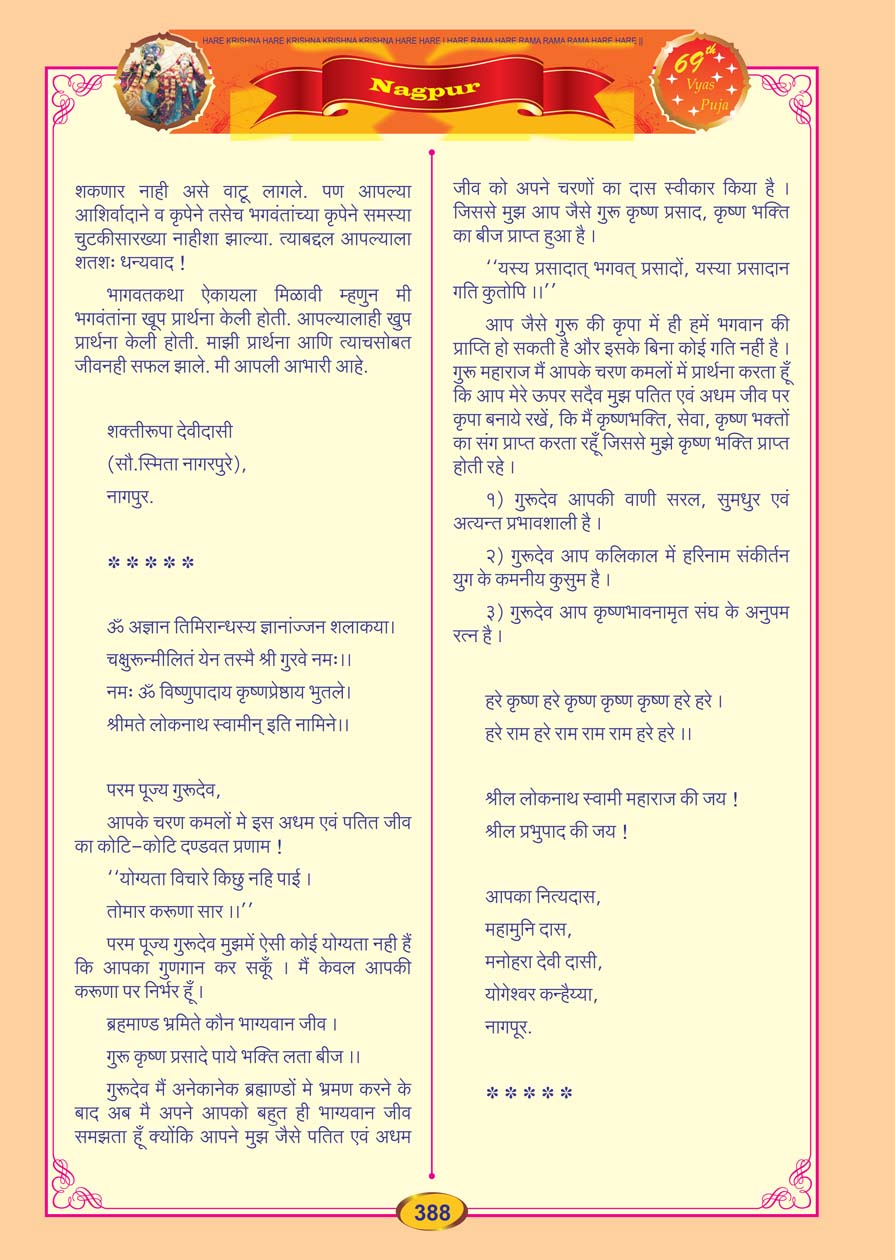 HARE KRISHNA HARE KRISHNA KRISHNA KRISHNA HARE HARE | HARE RAMA HARE RAMA RAMA RAMA HARE HARE ||
Nagpur
69th
Vyas
Puja
शकणार नाही असे वाटू लागले. पण आपल्या
आशिर्वादाने व कृपेने तसेच भगवंतांच्या कृपेने समस्या
चुटकीसारख्या नाहीशा झाल्या. त्याबद्दल आपल्याला
शतशः धन्यवाद !
भागवतकथा ऐकायला मिळावी म्हणुन मी
भगवंतांना खूप प्रार्थना केली होती. आपल्यालाही खुप
प्रार्थना केली होती. माझी प्रार्थना आणि त्याचसोबत
जीवनही सफल झाले. मी आपली आभारी आहे.
शक्तीरूपा देवीदासी
(सौ.स्मिता नागरपुरे),
नागपुर.
* * * * *
ॐ अज्ञान तिमिरान्धस्य ज्ञानांज्जन शलाकया।
चक्षुरून्मीलितं येन तस्मै श्री गुरवे नमः।।
नमः ॐ विष्णुपादाय कृष्णप्रेष्ठाय भुतले।
श्रीमते लोकनाथ स्वामीन् इति नामिने।।
परम पूज्य गुरूदेव,
आपके चरण कमलों मे इस अधम एवं पतित जीव
का कोटि-कोटि दण्डवत प्रणाम !
‘‘योग्यता विचारे किछु नहि पाई ।
तोमार करूणा सार ।।’’
परम पूज्य गुरूदेव मुझमें ऐसी कोई योग्यता नही हैं
कि आपका गुणगान कर सकूँ । मैं केवल आपकी
करूणा पर निर्भर हूँ ।
ब्रहमाण्ड भ्रमिते कौन भाग्यवान जीव ।
गुरू कृष्ण प्रसादे पाये भक्ति लता बीज ।।
गुरूदेव मैं अनेकानेक ब्रह्माण्डों मे भ्रमण करने के
बाद अब मै अपने आपको बहुत ही भाग्यवान जीव
समझता हूँ क्योंकि आपने मुझ जैसे पतित एवं अधम
जीव को अपने चरणों का दास स्वीकार किया है ।
जिससे मुझ आप जैसे गुरू कृष्ण प्रसाद, कृष्ण भक्ति
का बीज प्राप्त हुआ है ।
‘‘यस्य प्रसादात् भगवत् प्रसादों, यस्या प्रसादान
गति कुतोपि ।।’’
आप जैसे गुरू की कृपा में ही हमें भगवान की
प्राप्ति हो सकती है और इसके बिना कोई गति नहीं है ।
गुरू महाराज मैं आपके चरण कमलों में प्रार्थना करता हूँ
कि आप मेरे ऊपर सदैव मुझ पतित एवं अधम जीव पर
कृपा बनाये रखें, कि मैं कृष्णभक्ति, सेवा, कृष्ण भक्तों
का संग प्राप्त करता रहूँ जिससे मुझे कृष्ण भक्ति प्राप्त
होती रहे ।
१) गुरूदेव आपकी वाणी सरल, सुमधुर एवं
अत्यन्त प्रभावशाली है ।
२) गुरूदेव आप कलिकाल में हरिनाम संकीर्तन
युग के कमनीय कुसुम है ।
३) गुरूदेव आप कृष्णभावनामृत संघ के अनुपम
रत्न है ।
हरे कृष्ण हरे कृष्ण कृष्ण कृष्ण हरे हरे ।
हरे राम हरे राम राम राम हरे हरे ।।
श्रील लोकनाथ स्वामी महाराज की जय !
श्रील प्रभुपाद की जय !
आपका नित्यदास,
महामुनि दास,
मनोहरा देवी दासी,
योगेश्वर कन्हैय्या,
नागपूर.
* * * * *
388